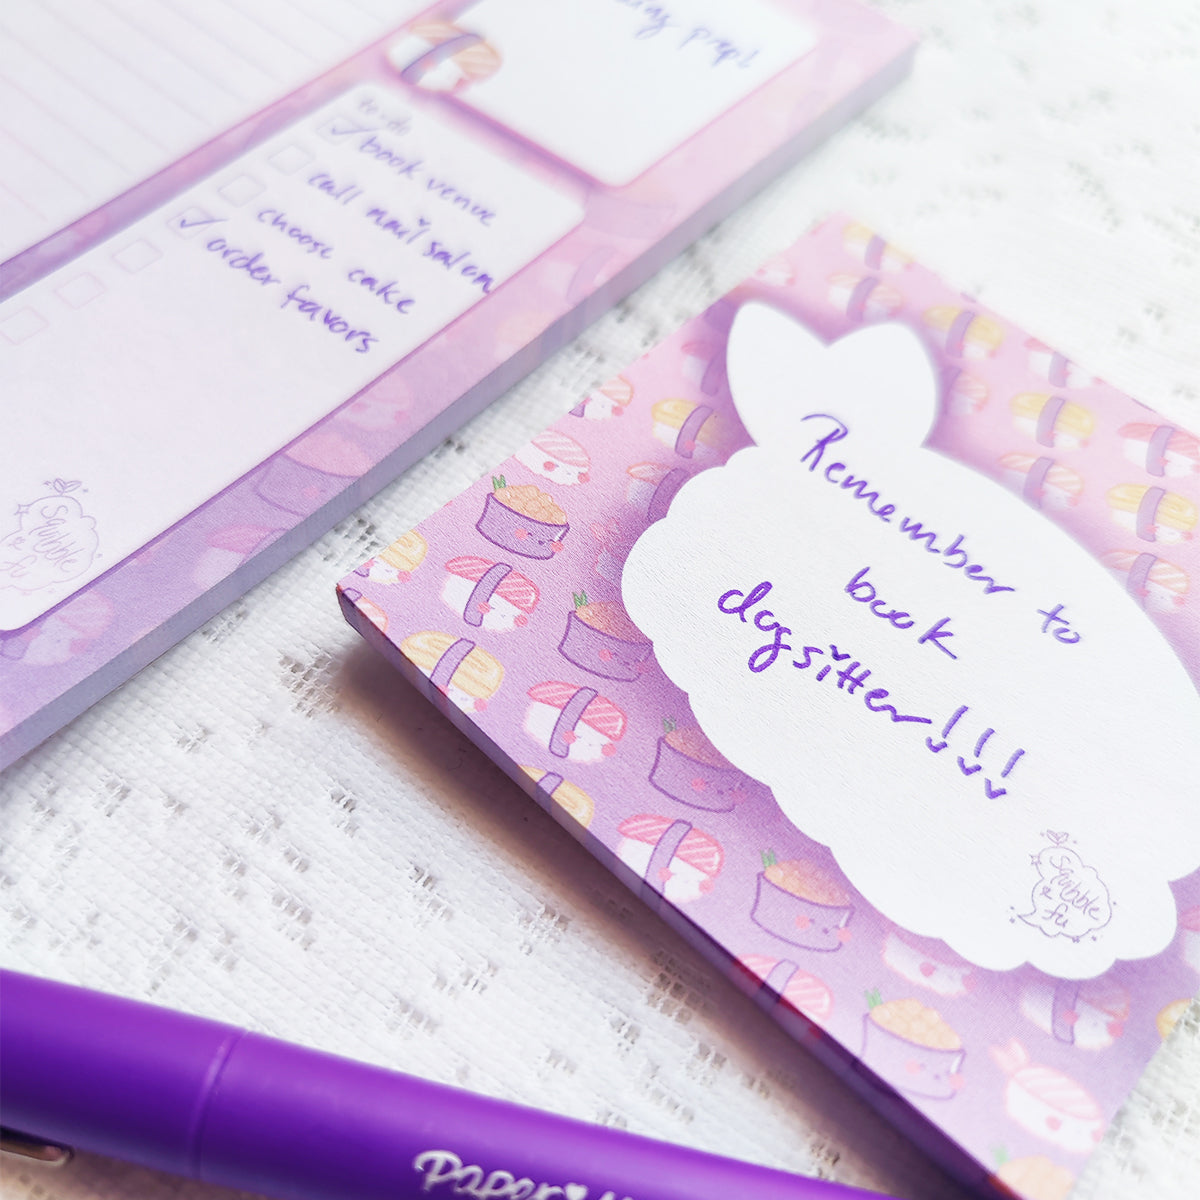 prep!
to-do
book venue
call nail salon
choose cake
order favors
Squbble
& fu
Remember to
book
dogsitter!!!
Squbble
& fu
Paper